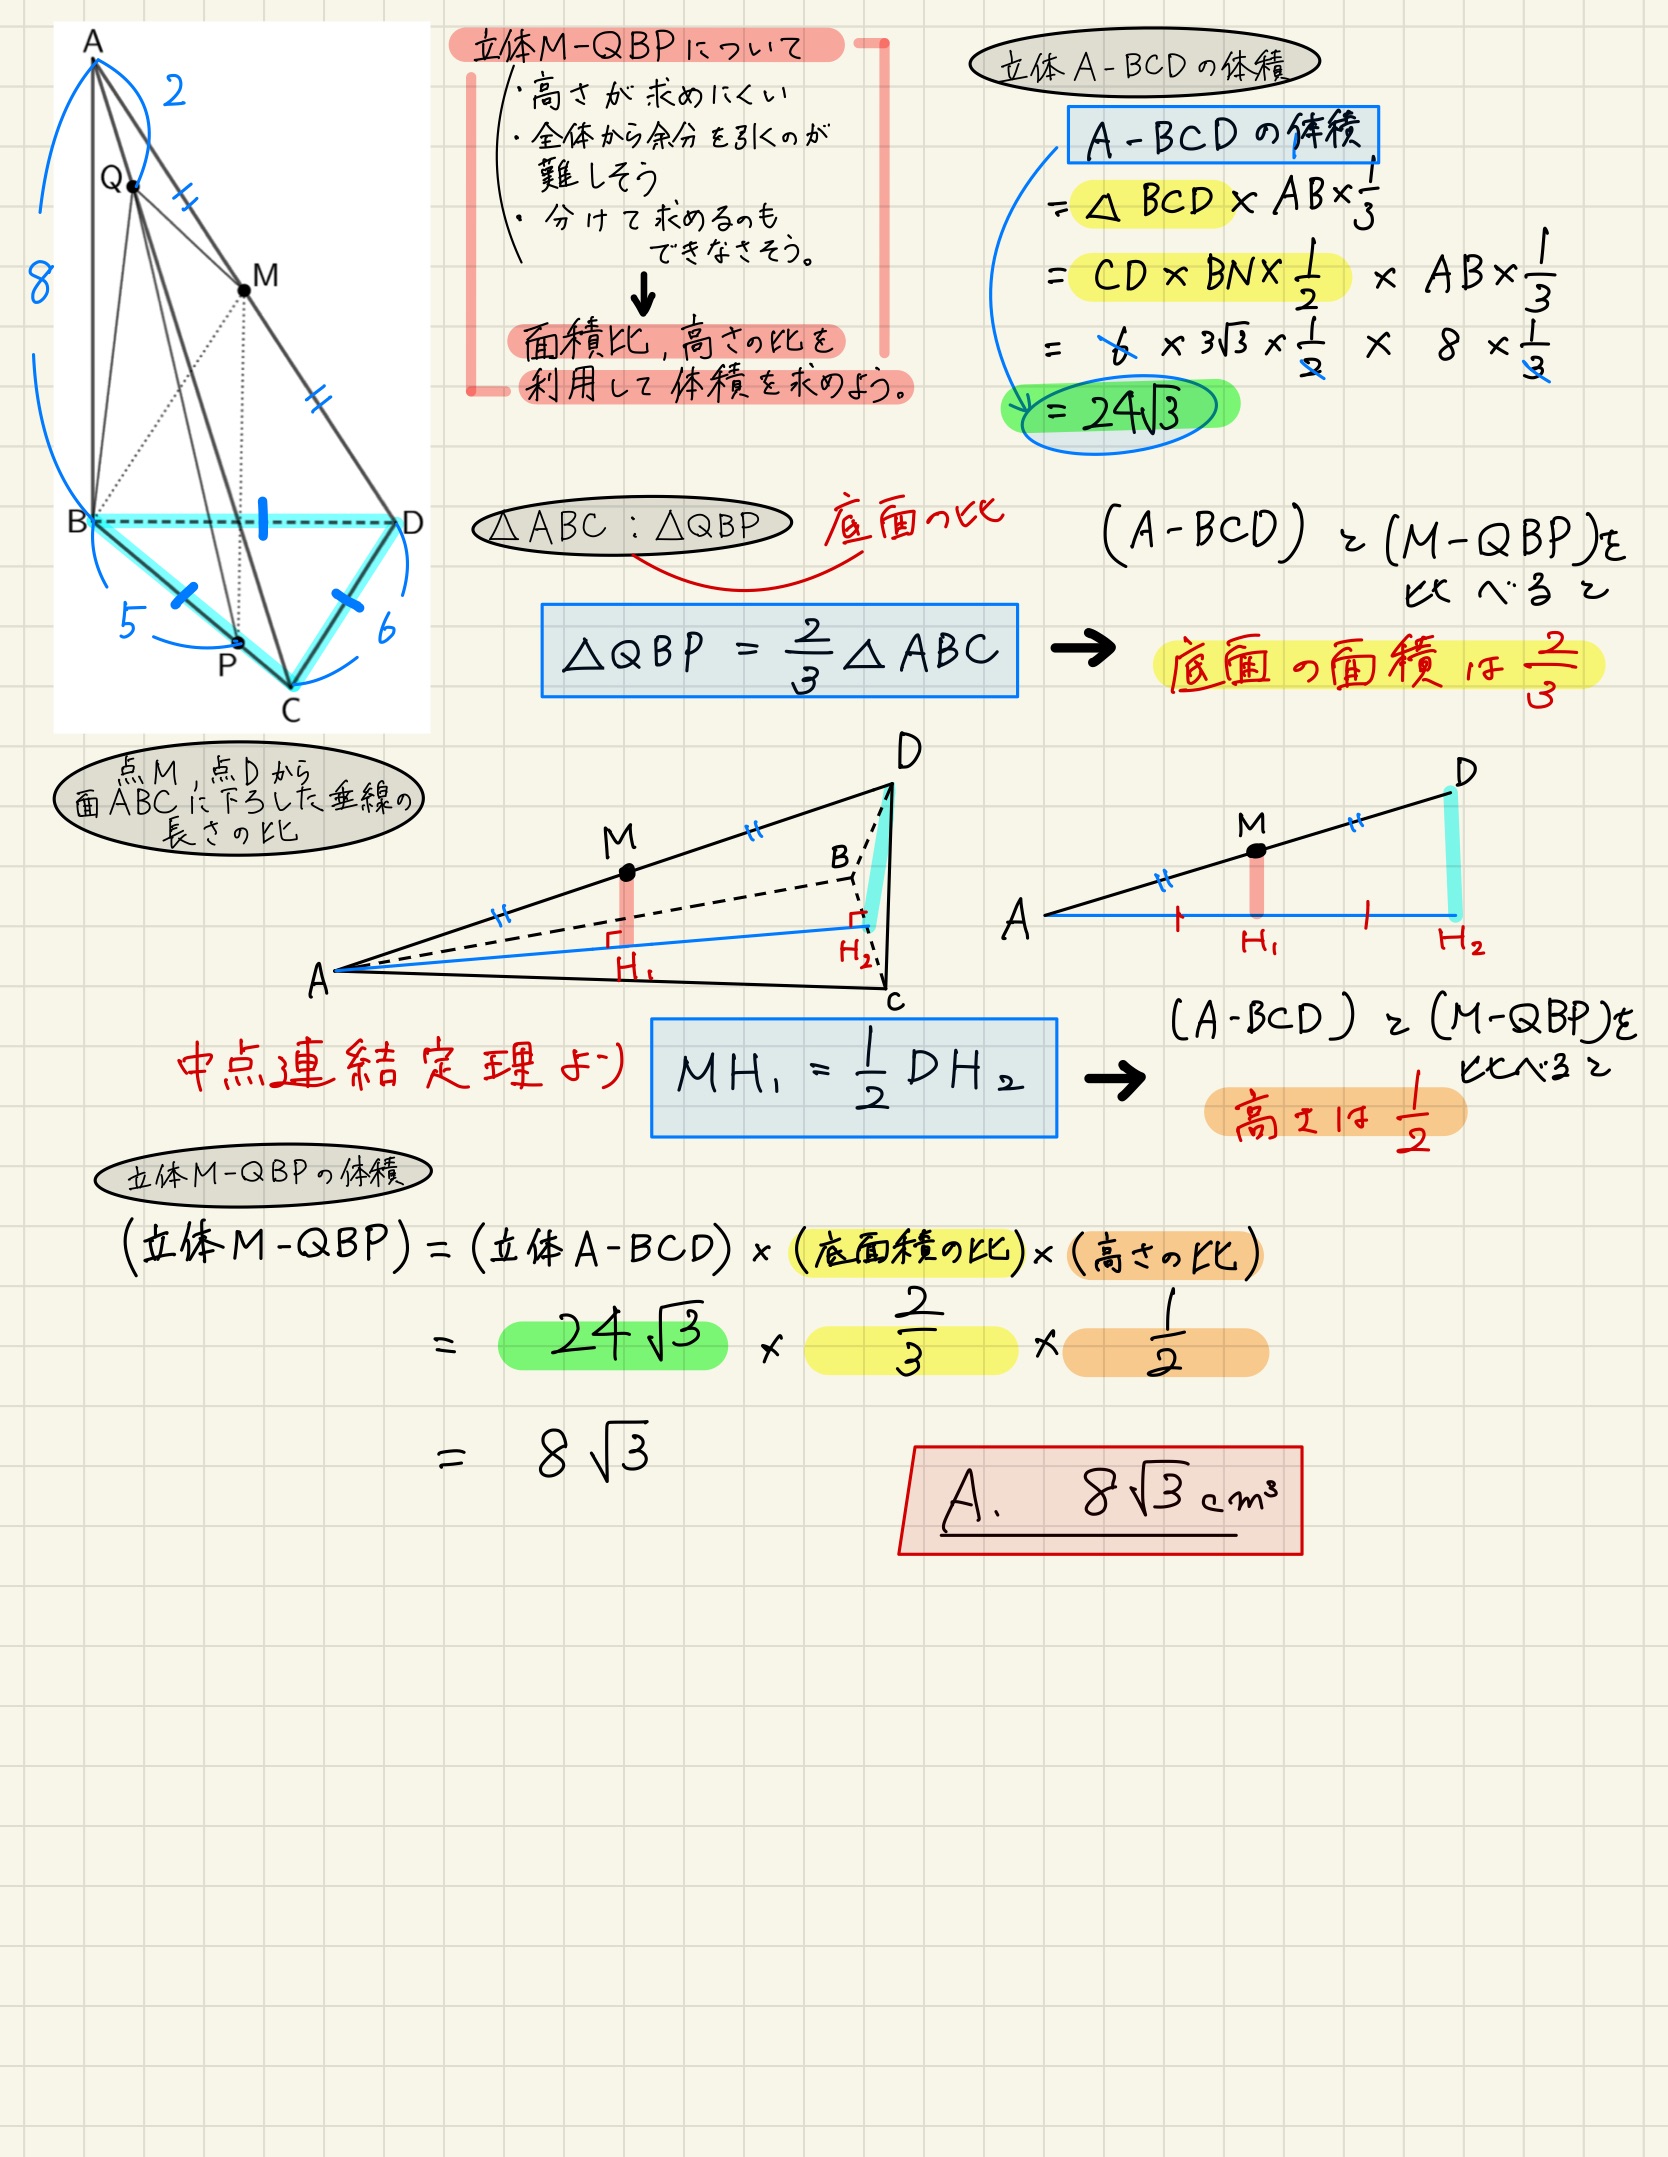 A
2
Q
M
8
B
D
5
6
P
C
立体M-QBPについて
・高さが求めにくい
・全体から余分を引くのが
難しそう
・分けて求めるのも
できなさそう。
↓
面積比,高さの比を
利用して体積を求めよう。
立体A-BCDの体積
A-BCDの体積
= △BCD × AB × 1/3
= CD × BN × 1/2 × AB × 1/3
= 6 × 3√3 × 1/2 × 8 × 1/3
= 24√3
△ABC : △QBP 底面の比
△QBP = 2/3 △ABC →
(A-BCD)と(M-QBP)を
比べると
底面の面積は 2/3
点M,点Dから
面ABCに下ろした垂線の
長さの比
D
M
B
H₂
H₁
A
C
D
M
A
H₁
H₂
中点連結定理より
MH₁ = 1/2 DH₂ →
(A-BCD)と(M-QBP)を
比べると
高さは 1/2
立体M-QBPの体積
(立体M-QBP) = (立体A-BCD) × (底面積の比) × (高さの比)
= 24√3 × 2/3 × 1/2
= 8√3
A. 8√3 cm³